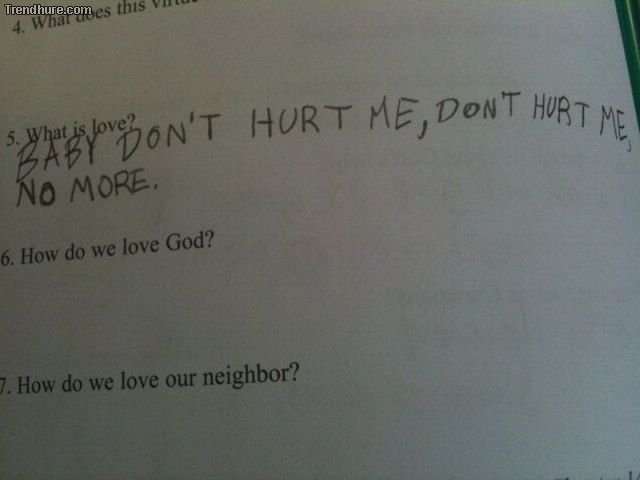 Trendhure.com
4. What does this
5. What is love?
BABY DON'T HURT ME, DON'T HURT ME,
NO MORE.
6. How do we love God?
7. How do we love our neighbor?